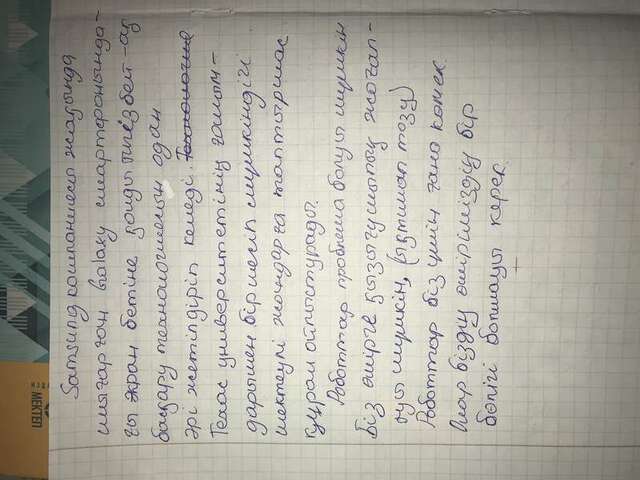 МЕКТЕП
Samsung компаниясы жазында
шығарған Galaxy смартфонында-
ғы экран бетіне қолды тигізбей-ақ
басқару технологиясын одан
әрі жетілдіріп келеді. Технология
Техас университетінің ғалым-
дарымен бірлесіп мүмкіндігі
шектеулі жандарға таптырмас
құрал ойластырады.
Роботтар проблема болуы мүмкін
Біз өмірге қызығушылық жоғал-
туы мүмкін, (ықтимал тозу)
Роботтар біз үшін ғана көмек.
Олар біздің өміріміздің бір
бөлігі болмауы керек.